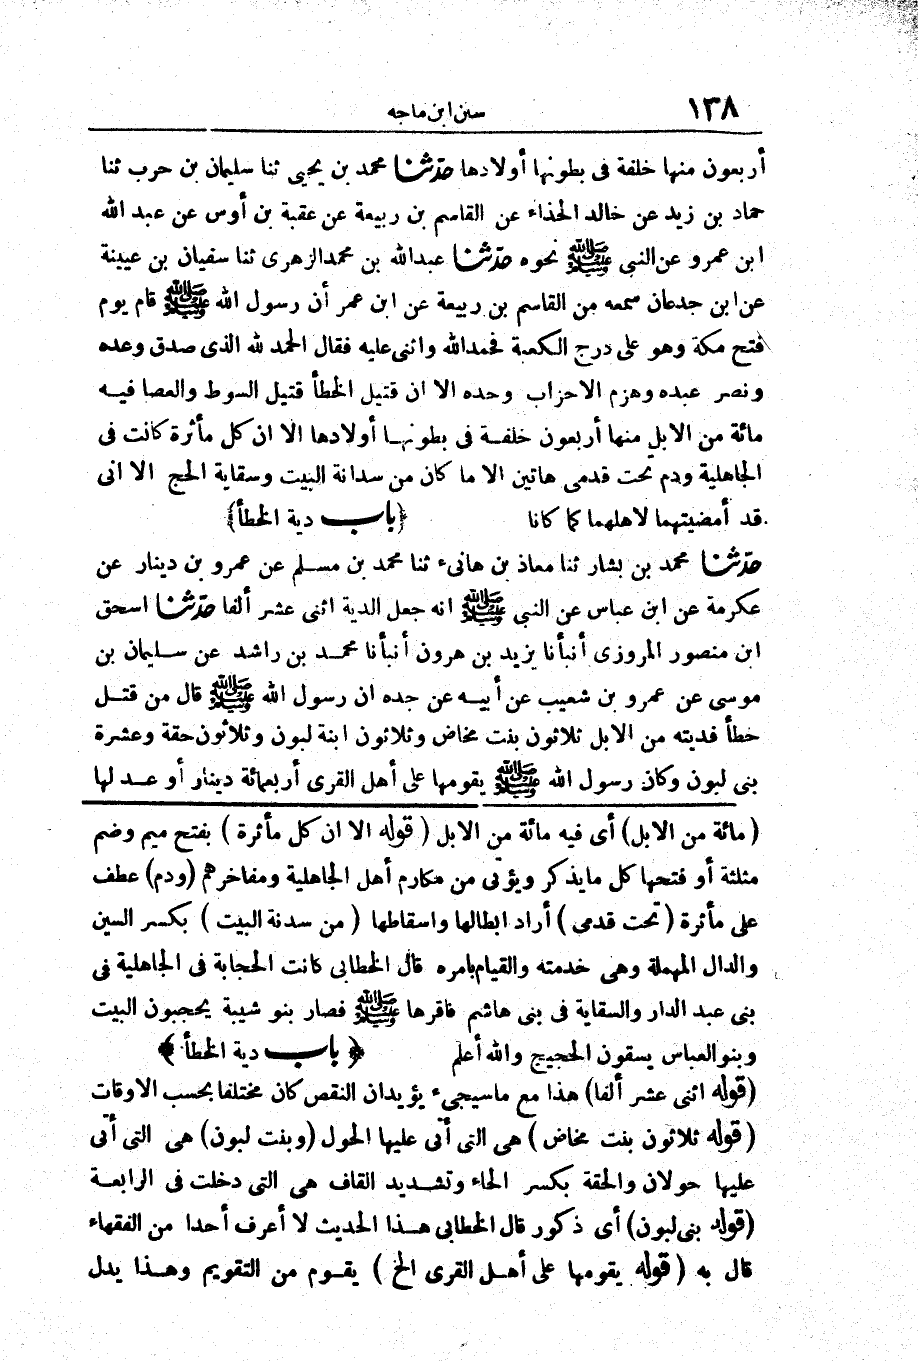 سنن ابن ماجه ١٣٨
أربعون منها خلفة فى بطونها أولادها حدّثنا محمد بن يحيى ثنا سليمان بن حرب ثنا
حماد بن زيد عن خالد الحذاء عن القاسم بن ربيعة عن عقبة بن أوس عن عبد الله
ابن عمرو عن النبى ﷺ نحوه حدّثنا عبدالله بن محمد الزهرى ثنا سفيان بن عيينة
عن ابن جدعان سمعه من القاسم بن ربيعة عن ابن عمر أن رسول الله ﷺ قام يوم
فتح مكة وهو على درج الكعبة فحمدالله واثنى عليه فقال الحمد لله الذى صدق وعده
ونصر عبده وهزم الاحزاب وحده الا ان قتيل الخطأ قتيل السوط والعصا فيه
مائة من الابل منها أربعون خلفة فى بطونها أولادها الا ان كل مأثرة كانت فى
الجاهلية ودم تحت قدمى هاتين الا ما كان من سدانة البيت وسقاية الحج الا انى
قد أمضيتهما لاهلهما كما كانا ﴿باب دية الخطأ﴾
حدّثنا محمد بن بشار ثنا معاذ بن هانىء ثنا محمد بن مسلم عن عمرو بن دينار عن
عكرمة عن ابن عباس عن النبى ﷺ انه جعل الدية اثنى عشر ألفا حدّثنا اسحق
ابن منصور المروزى أنبأنا يزيد بن هرون أنبأنا محمد بن راشد عن سليمان بن
موسى عن عمرو بن شعيب عن أبيه عن جده ان رسول الله ﷺ قال من قتل
خطأ فديته من الابل ثلاثون بنت مخاض وثلاثون ابنة لبون وثلاثون حقة وعشرة
بنى لبون وكان رسول الله ﷺ يقومها على أهل القرى أربعمائة دينار أو عدلها
(مائة من الابل) أى فيه مائة من الابل (قوله الا ان كل مأثرة) بفتح ميم وضم
مثلثة أو فتحها كل مايذكر ويؤثى من مكارم أهل الجاهلية ومفاخرهم (ودم) عطف
على مأثرة (تحت قدمى) أراد ابطالها واسقاطها (من سدنة البيت) بكسر السين
والدال المهملة وهى خدمته والقيام بامره قال الخطابى كانت الحجابة فى الجاهلية فى
بنى عبد الدار والسقاية فى بنى هاشم فاقرها ﷺ فصار بنو شيبة يحجبون البيت
وبنو العباس يسقون الحجيج والله أعلم ﴿باب دية الخطأ﴾
(قوله اثنى عشر ألفا) هذا مع ماسيجىء يؤيدان النقص كان مختلفا بحسب الاوقات
(قوله ثلاثون بنت مخاض) هى التى أتى عليها الحول (وبنت لبون) هى التى أتى
عليها حولان والحقة بكسر الحاء وتشديد القاف هى التى دخلت فى الرابعة
(قوله بنى لبون) أى ذكور قال الخطابى هذا الحديث لا أعرف أحدا من الفقهاء
قال به (قوله يقومها على أهل القرى الخ) يقوم من التقويم وهذا يدل